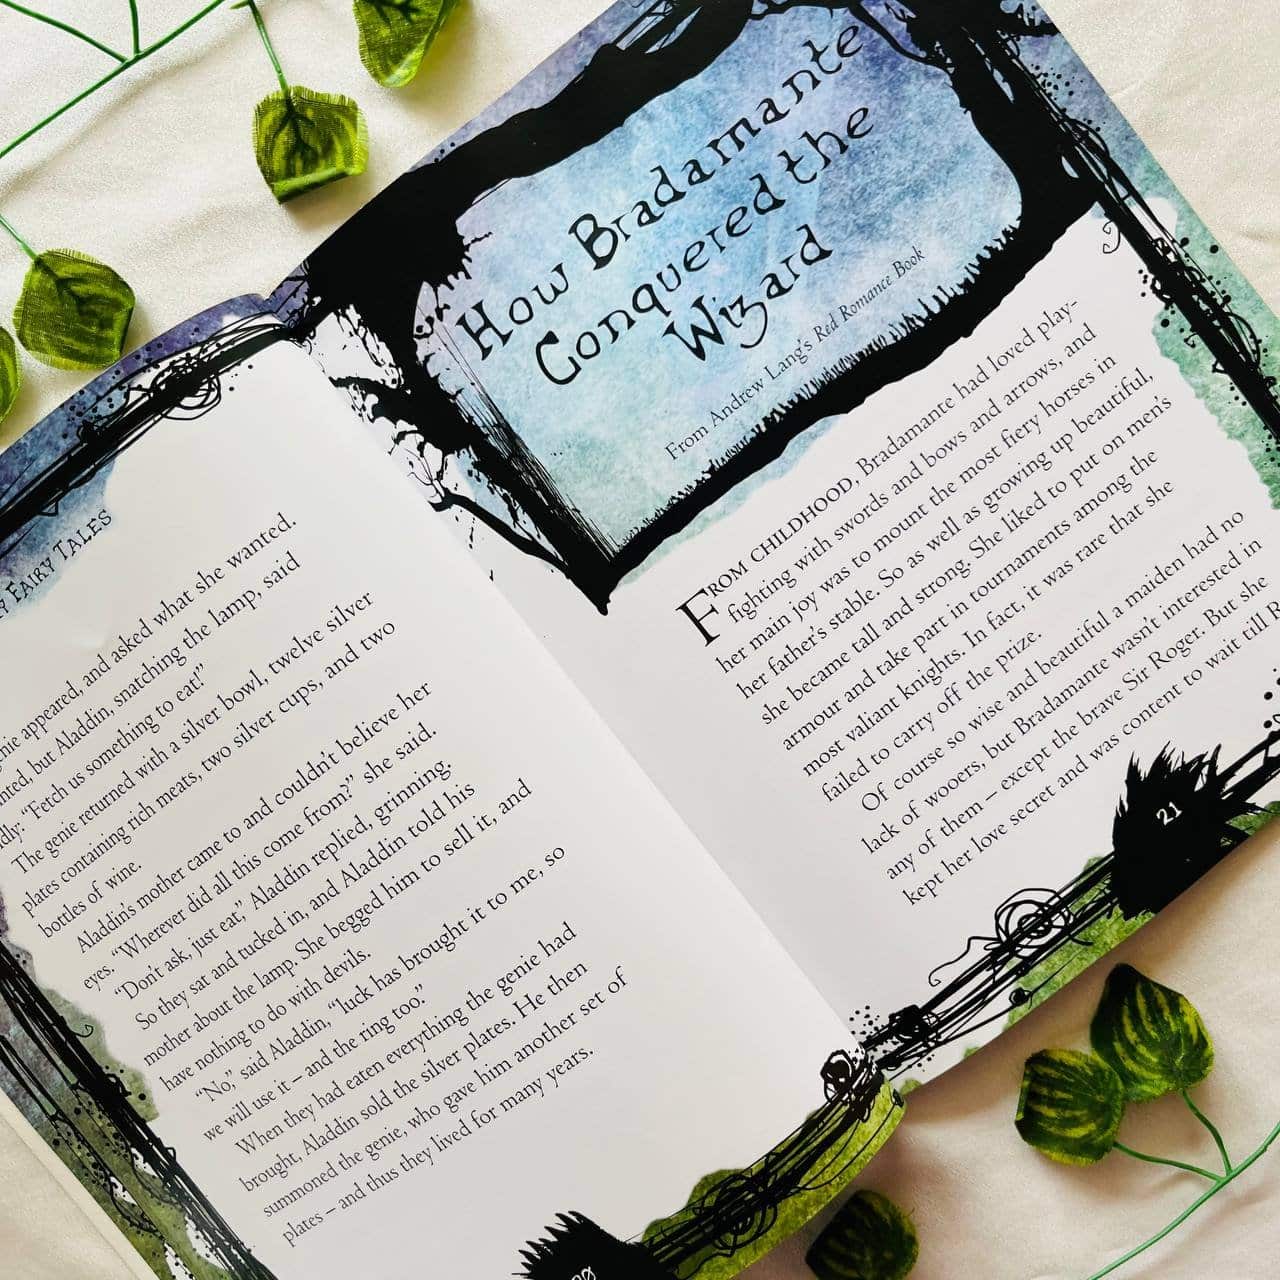 FAIRY TALES
appeared, and asked what she wanted.
but Aladdin, snatching the lamp, said
"Fetch us something to eat!"
The genie returned with a silver bowl, twelve silver
plates containing rich meats, two silver cups, and two
bottles of wine.
Aladdin's mother came to and couldn't believe her
eyes. "Wherever did all this come from?" she said.
"Don't ask, just eat," Aladdin replied, grinning.
So they sat and tucked in, and Aladdin told his
mother about the lamp. She begged him to sell it, and
have nothing to do with devils.
"No," said Aladdin, "luck has brought it to me, so
we will use it – and the ring too."
When they had eaten everything the genie had
brought, Aladdin sold the silver plates. He then
summoned the genie, who gave him another set of
plates – and thus they lived for many years.
How Bradamante
Conquered the
Wizard
From Andrew Lang's Red Romance Book
FROM CHILDHOOD, Bradamante had loved play-
fighting with swords and bows and arrows, and
her main joy was to mount the most fiery horses in
her father's stable. So as well as growing up beautiful,
she became tall and strong. She liked to put on men's
armour and take part in tournaments among the
most valiant knights. In fact, it was rare that she
failed to carry off the prize.
Of course so wise and beautiful a maiden had no
lack of wooers, but Bradamante wasn't interested in
any of them – except the brave Sir Roger. But she
kept her love secret and was content to wait till
21